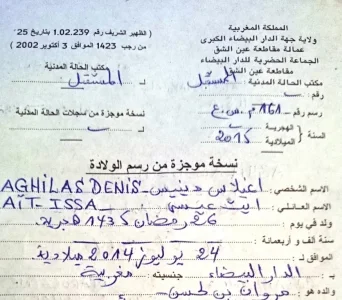 المملكة المغربية
ولاية جهة الدار البيضاء الكبرى
عمالة مقاطعة عين الشق
الجماعة الحضرية للدار البيضاء
مقاطعة عين الشق
مكتب الحالة المدنية
لـ المستقبل
رقم :
رسم رقم : 161
السنة الهجرية
الميلادية 2015
( الظهير الشريف رقم 1.02.239 بتاريخ 25
من رجب 1423 الموافق 3 أكتوبر 2002 )
مكتب الحالة المدنية
لـ المستقبل
نسخة موجزة من سجلات الحالة المدنية
لـ
نسخة موجزة من رسم الولادة
الاسم الشخصي : اغيلاس دينيس - AGHILAS DENIS
الاسم العائلي : ايت عيسى - AÏT-ISSA
ولد في يوم : 26 رمضان 1435 هجرية
سنة ألف و أربعمائة
الموافق لـ : 24 يوليوز 2014 ميلادية
بـ : الدار البيضاء جنسيته مغربية
والده هو : مروان بن لحسن